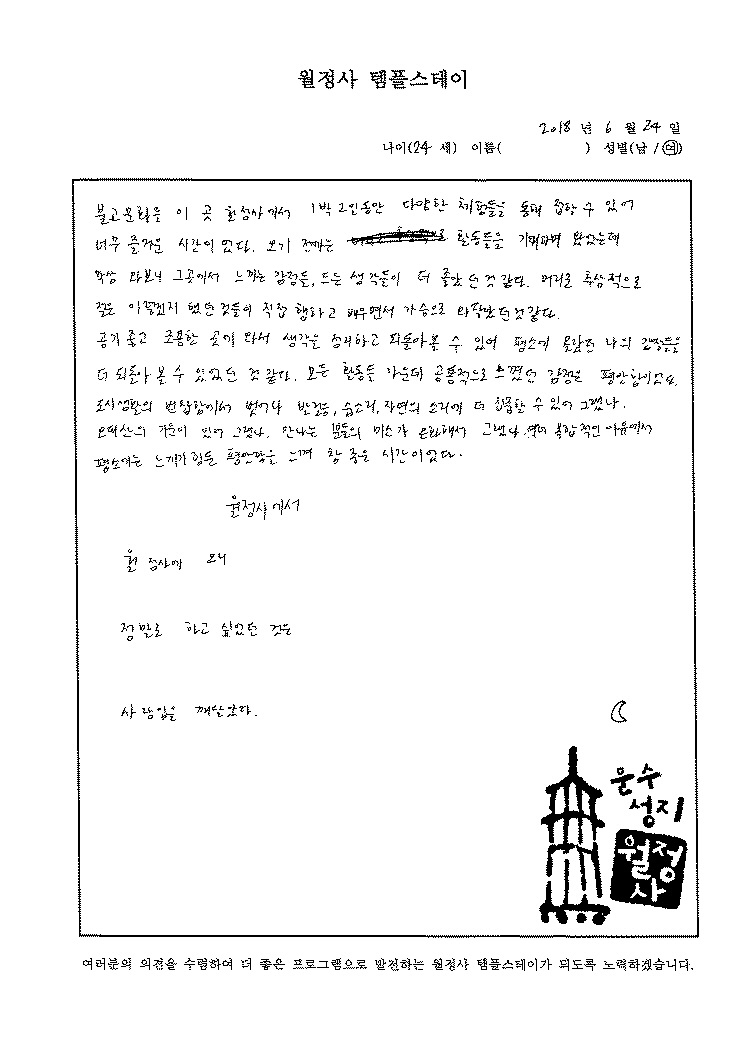 월정사 템플스테이
2018 년 6 월 24 일
나이(24 세) 이름( ) 성별(남 / 여)
불교문화를 이 곳 월정사에서 1박 2일동안 다양한 체험들을 통해 접할 수 있어
너무 즐거운 시간이었다. 오기 전에는 활동들을 기대하며 왔었는데
막상 와보니 그곳에서 느끼는 감정들, 드는 생각들이 더 좋았던 것 같다. 머리로 추상적으로
정도 이끌렸던 것들이 직접 행하고 배우면서 가슴으로 와닿았던것같다.
공기좋고 조용한 곳에 와서 생각을 정리하고 되돌아볼 수 있어 평소에 몰랐던 나의 감정들을
더 되돌아 볼 수 있었던 것 같다. 모든 활동들 가운데 공통적으로 느꼈던 감정은 평안함이었다.
도시생활의 번잡함에서 벗어나 반딧불, 숲소리, 자연의 소리에 더 집중할 수 있어 그랬나.
오대산의 기운이 있어 그랬나, 만나는 분들의 미소가 온화해서 그랬나 복합적인 이유에서
평소에는 느끼기 힘든 평안함을 느껴 참 좋은 시간이었다.
월정사에서
월 정사에 오니
정 말로 하고 싶었던 것은
사 랑임을 깨달았다.
문수
성지
월정
사
여러분의 의견을 수렴하여 더 좋은 프로그램으로 발전하는 월정사 템플스테이가 되도록 노력하겠습니다.